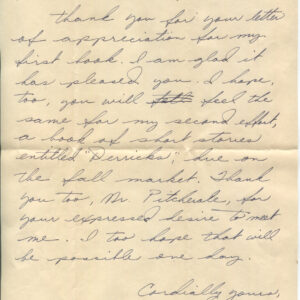 thank you for your letter
of appreciation for my
first book. I am glad it
has pleased you. I hope,
too, you will feel the
same for my second effort,
a book of short stories
entitled "Derricks", due on
the fall market. Thank
you too, Mr. Pitcherale, for
your expressed desire to meet
me. I too hope that will
be possible one day.
Cordially yours,